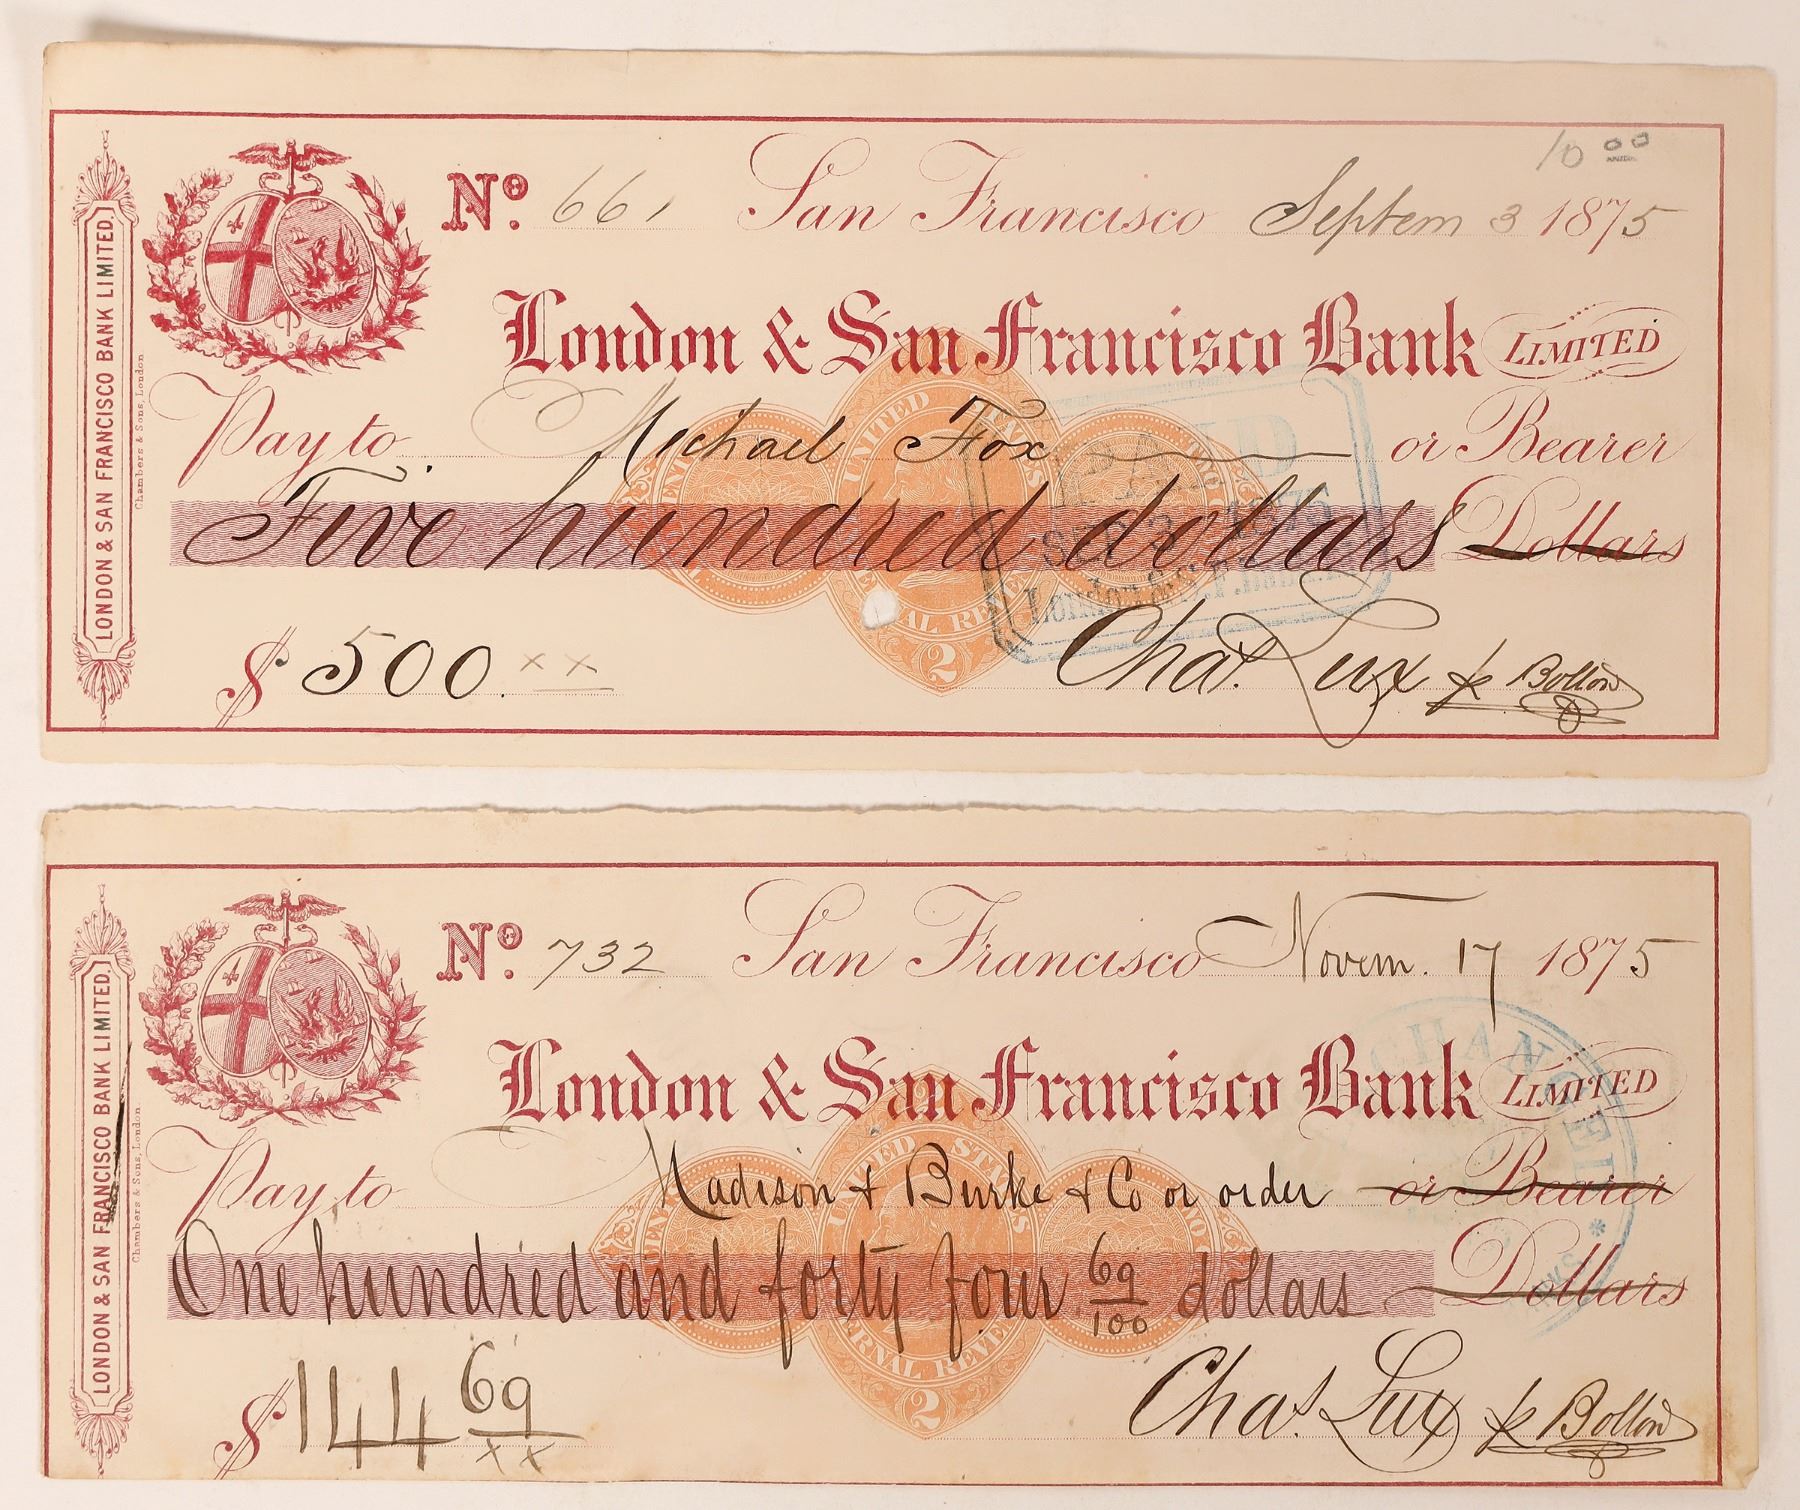 10 00
No. 661 San Francisco Septem 3 1875
London & San Francisco Bank LIMITED
Pay to Michael Fox or Bearer
Five hundred dollars Dollars
$ 500. xx
Chas. Lux
LONDON & SAN FRANCISCO BANK LIMITED.
Chambers & Sons, London
UNITED
2
No. 732 San Francisco Novem. 17 1875
London & San Francisco Bank LIMITED
Pay to Madison & Burke & Co or order or Bearer
One hundred and forty four 69/100 dollars Dollars
$ 144 69/xx
Chas Lux
LONDON & SAN FRANCISCO BANK LIMITED.
Chambers & Sons, London
UNITED STATES
2